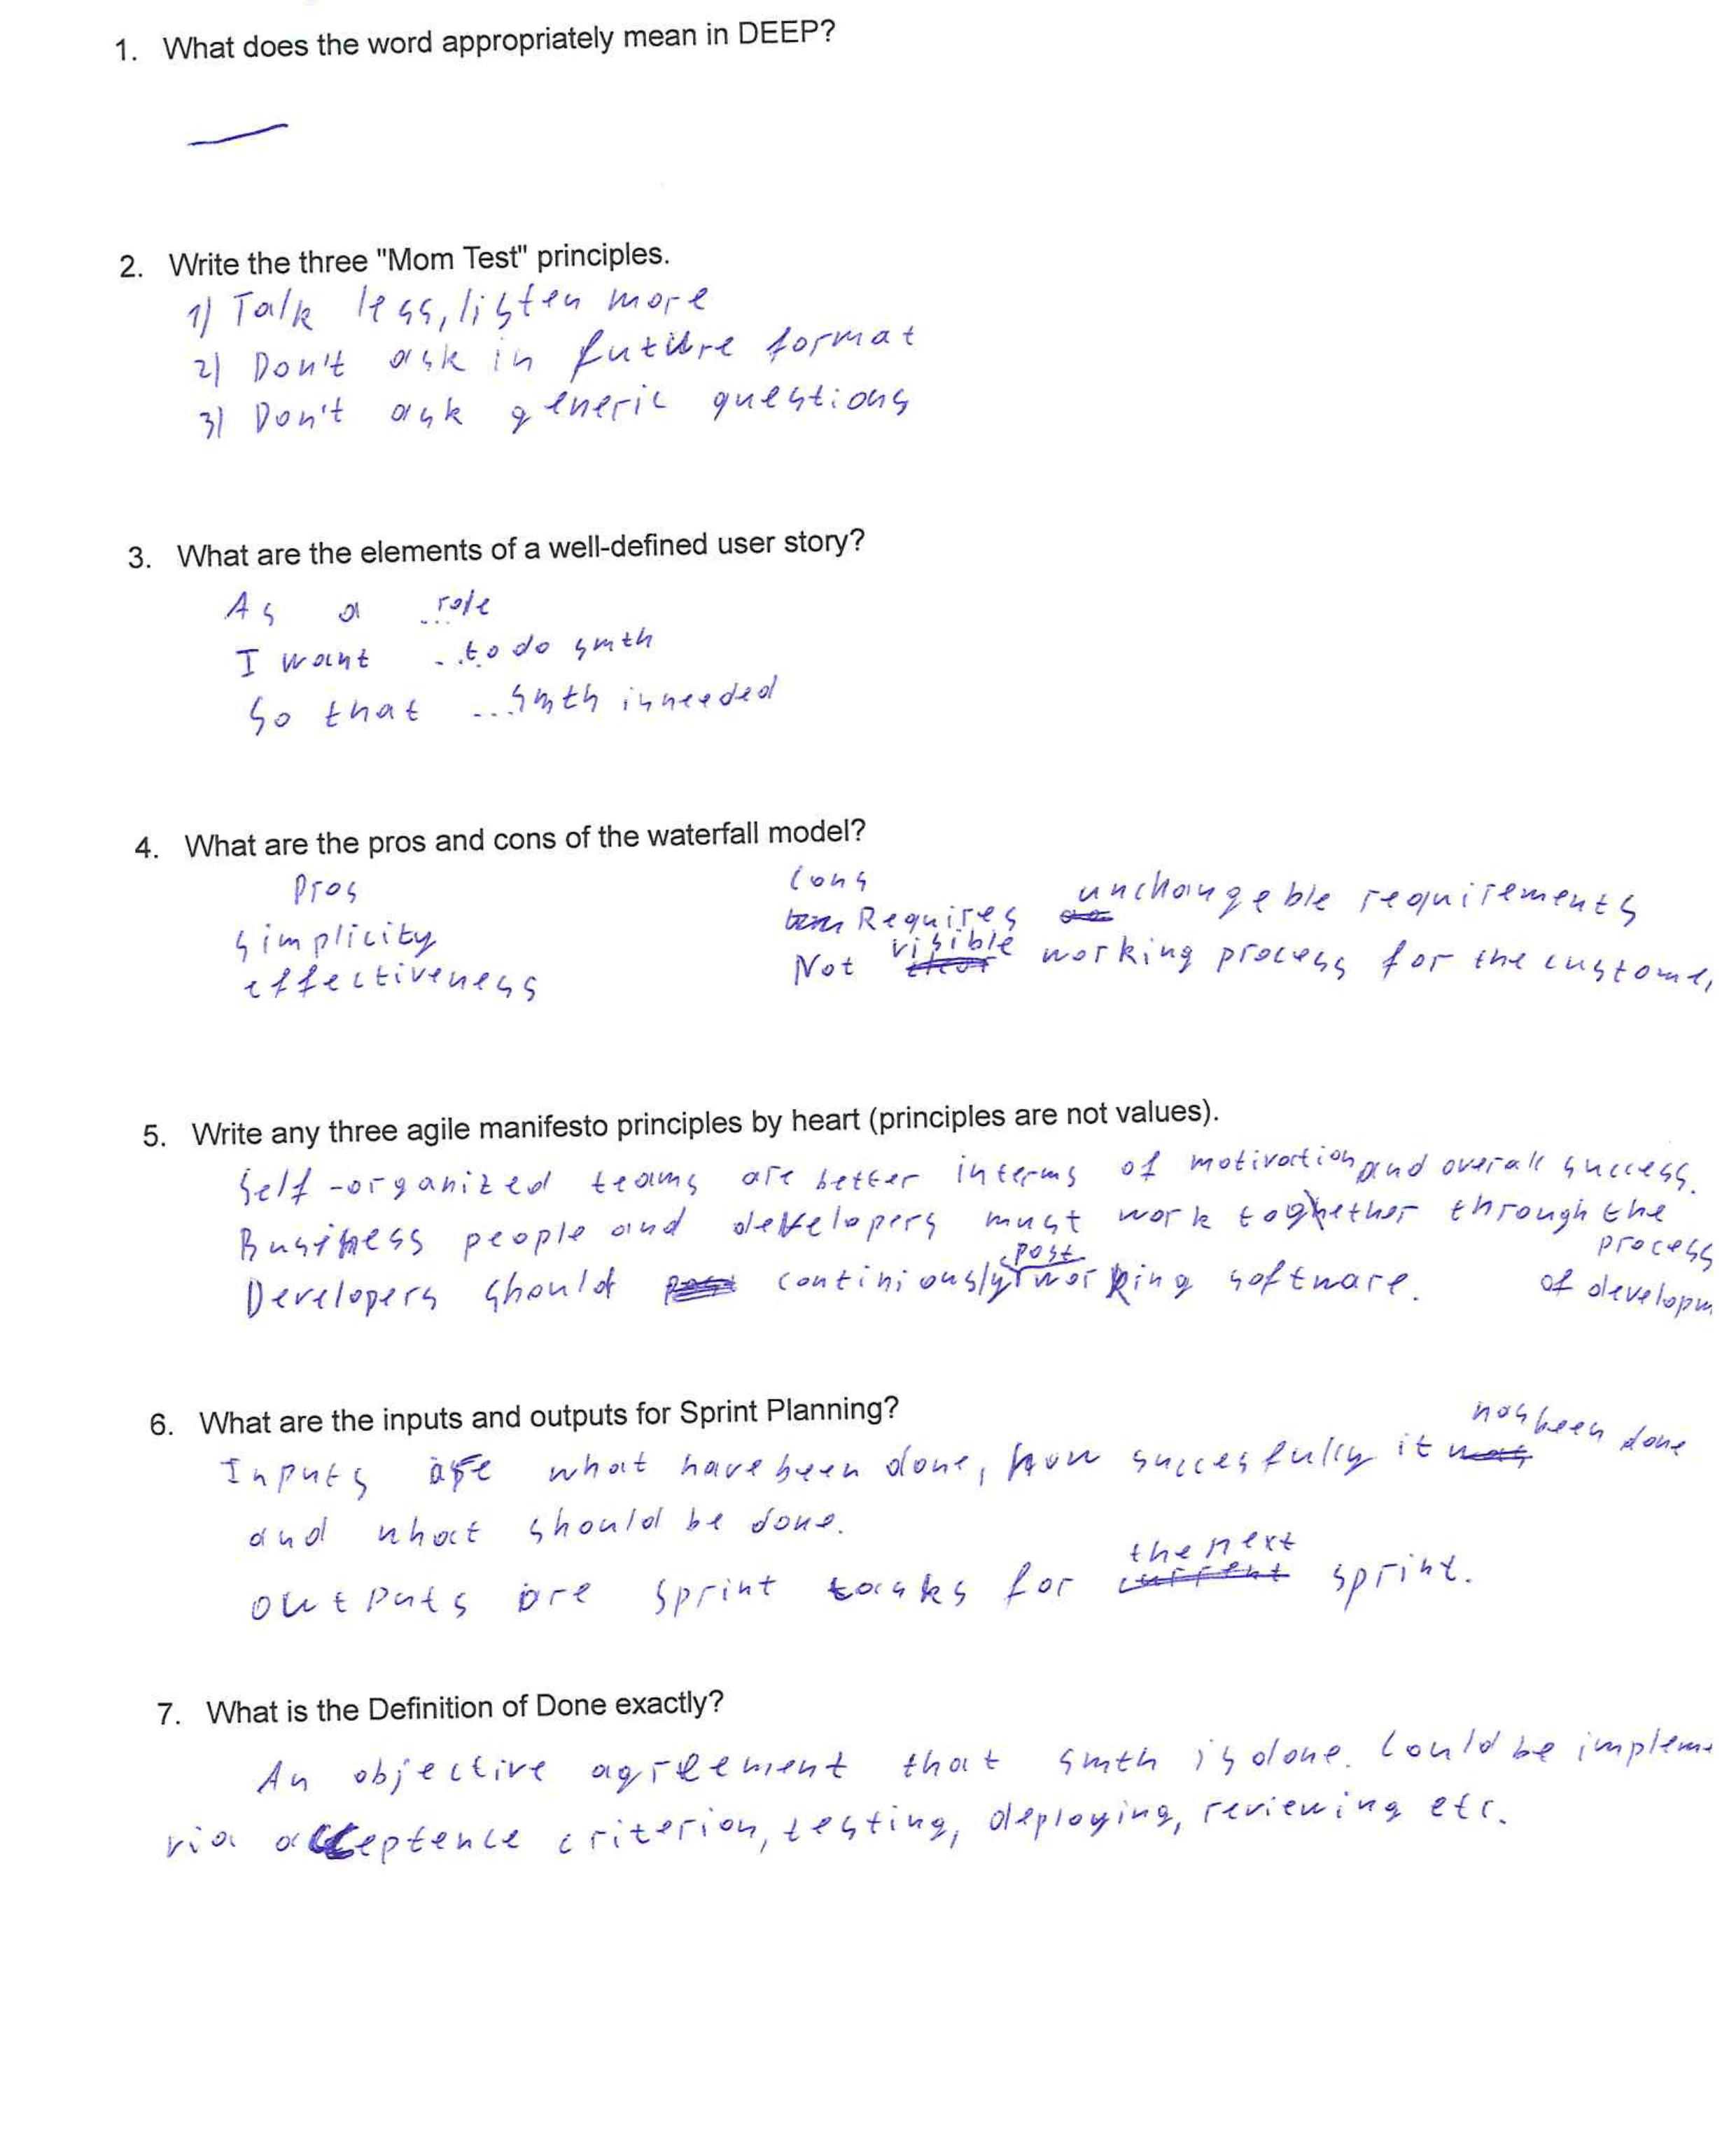 1. What does the word appropriately mean in DEEP?
2. Write the three "Mom Test" principles.
1) Talk less, listen more
2) Don't ask in future format
3) Don't ask generic questions
3. What are the elements of a well-defined user story?
As a ...role
I want ...to do smth
So that ...smth is needed
4. What are the pros and cons of the waterfall model?
Pros
simplicity
effectiveness
Cons
Requires unchangeble requirements
Not visible working process for the custome
5. Write any three agile manifesto principles by heart (principles are not values).
Self-organized teams are better in terms of motivation and overall success.
Business people and developers must work toghether through the process of developm
Developers should continiously post working software.
6. What are the inputs and outputs for Sprint Planning?
Inputs are what have been done, how succesfully it has been done
and what should be done.
Outputs are sprint tasks for the next sprint.
7. What is the Definition of Done exactly?
An objective agreement that smth is done. Could be implem
via acceptence criterion, testing, deploying, reviewing etc.